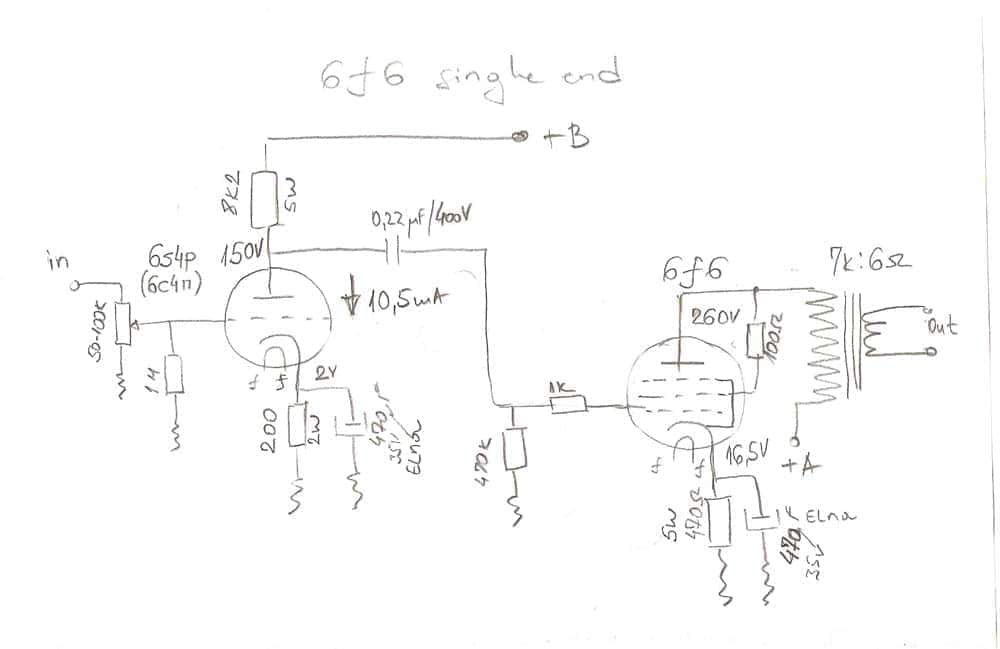 6f6 single end
+B
8K2
5W
0,22µF/400V
in
6s4p
(6c4п)
150V
10,5mA
50-100K
1M
f f
2V
200
2W
470µ
35V
ELna
470K
1K
6f6
7K:6Ω
260V
100Ω
out
+A
f f
16,5V
5W
470Ω
ELna
470
35V